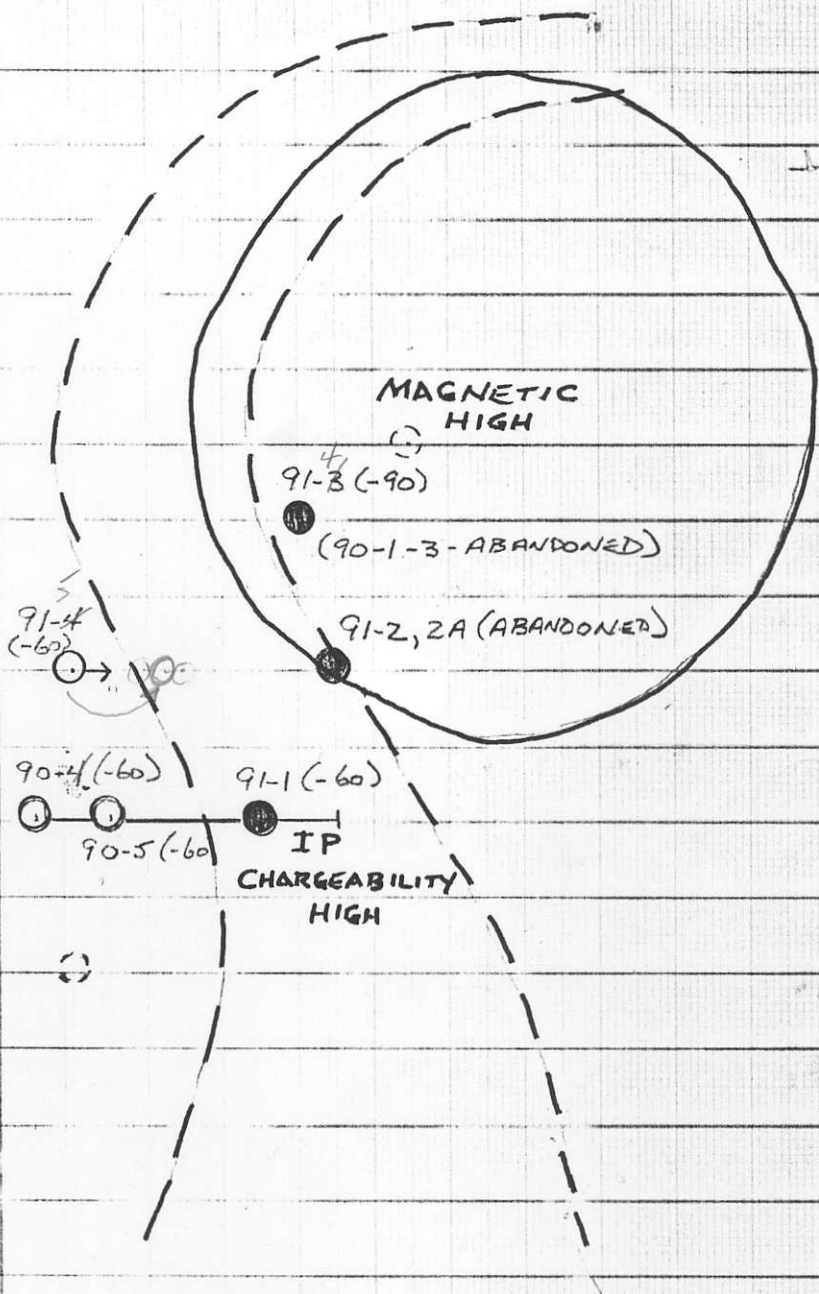 MAGNETIC
HIGH
4,
91-3 (-90)
(90-1-3-ABANDONED)
5
91-4
(-60)
91-2, 2A (ABANDONED)
90-4 (-60)
91-1 (-60)
90-5 (-60
IP
CHARGEABILITY
HIGH